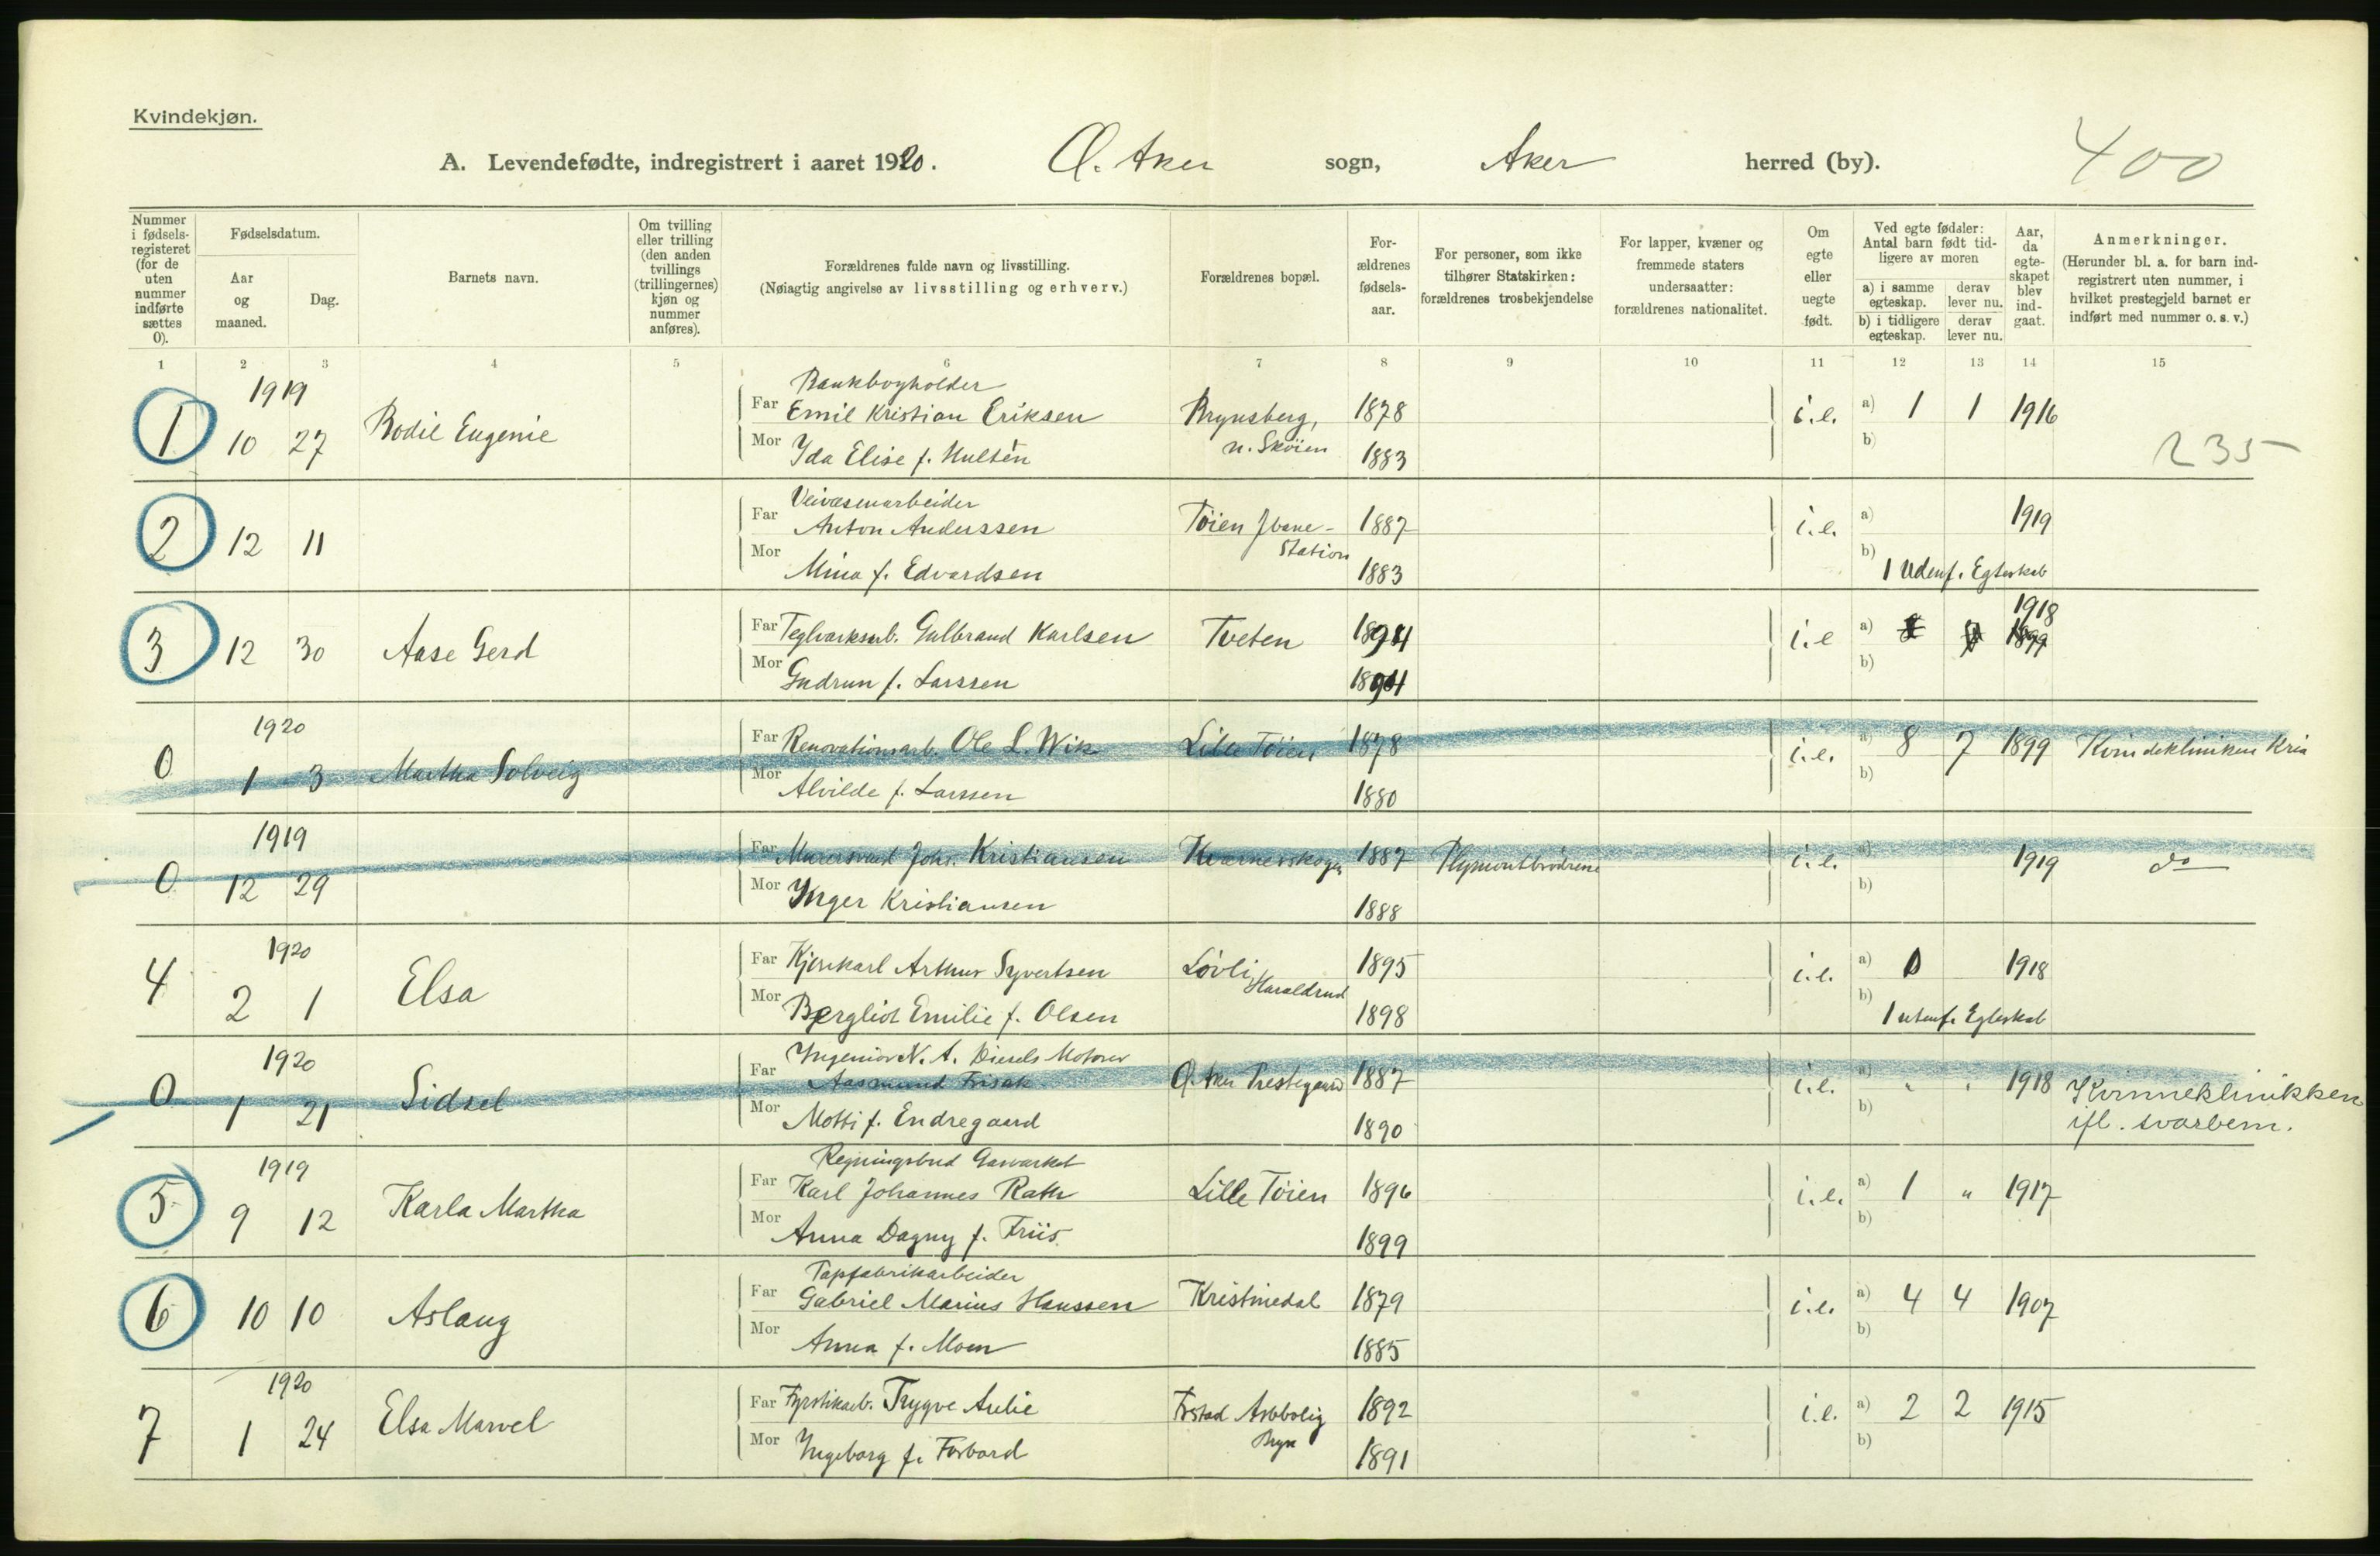 Kvindekjøn.
A. Levendefødte, indregistrert i aaret 1920. Ø. Aker sogn, Aker herred (by). 400
Nummer i fødsels-registeret (for de uten nummer indførte sættes 0).
Fødselsdatum.
Aar og maaned.
Dag.
Barnets navn.
Om tvilling eller trilling (den anden tvillings (trillingernes) kjøn og nummer anføres).
Forældrenes fulde navn og livsstilling.
(Nøiagtig angivelse av livsstilling og erhverv.)
Forældrenes bopæl.
For-ældrenes fødsels-aar.
For personer, som ikke tilhører Statskirken: forældrenes trosbekjendelse
For lapper, kvæner og fremmede staters undersaatter: forældrenes nationalitet.
Om egte eller uegte født.
Ved egte fødsler: Antal barn født tid-ligere av moren
a) i samme egteskap. derav lever nu.
b) i tidligere egteskap. derav lever nu.
Aar, da egte-skapet blev ind-gaat.
Anmerkninger.
(Herunder bl. a. for barn ind-registrert uten nummer, i hvilket prestegjeld barnet er indført med nummer o. s. v.)
1 2 3 4 5 6 7 8 9 10 11 12 13 14 15
1919 Bankbogholder
1 10 27 Bodil Eugenie Far Emil Kristian Eriksen Brynsberg, 1878 i.e. a) 1 1 1916
Mor Ida Elise f. Hultén n. Skøien 1883 b) 235
Veivæsenarbeider
2 12 11 Far Anton Anderssen Tøien Jbane- 1887 i.e. a) 1919
Station
Mor Mina f. Edvardsen 1883 b) 1 Udenf. Egteskab
1918
3 12 30 Aase Gerd Far Teglverksarb. Gulbrand Karlsen Tveten 1894 i.e a) 1899
Mor Gudrun f. Larssen 1894 b)
1920
0 1 3 Martha Solveig Far Renovationsarb. Ole L. Wik Lille Tøien 1878 i.e. a) 8 7 1899 Kvindekliniken Kria
Mor Alvilde f. Larssen 1880 b)
1919
0 12 29 Far Murersvend Johs. Kristiansen 1887 i.e. a) 1919 do
Mor Inger Kristiansen 1888 b)
1920
4 2 1 Elsa Far Kjørekarl Arthur Syvertsen Løvli 1895 i.e. a) 0 1918
Haraldrud
Mor Bergliot Emilie f. Olsen 1898 b) 1 utenf. Egteskab
1920 Ingeniør N. A. Diesels Motorer
0 1 21 Sidsel Far Aasmund Frisak Ø. Aker Prestegaard 1887 i.e. a) " " 1918 Kvinneklinikken
Mor Motti f. Endregaard 1890 b) ifl. svarbem.
1919 Regningsbud Gasverket
5 9 12 Karla Martha Far Karl Johannes Rath Lille Tøien 1896 i.e. a) 1 " 1917
Mor Anna Dagny f. Friis 1899 b)
Tapfabrikarbeider
6 10 10 Aslaug Far Gabriel Marius Hanssen Kristinedal 1879 i.e. a) 4 4 1907
Mor Anna f. Moen 1885 b)
1920
7 1 24 Elsa Marvel Far Fyrstikarb. Trygve Aulie Arbbolig 1892 i.e. a) 2 2 1915
Bryn
Mor Ingeborg f. Forbord 1891 b)